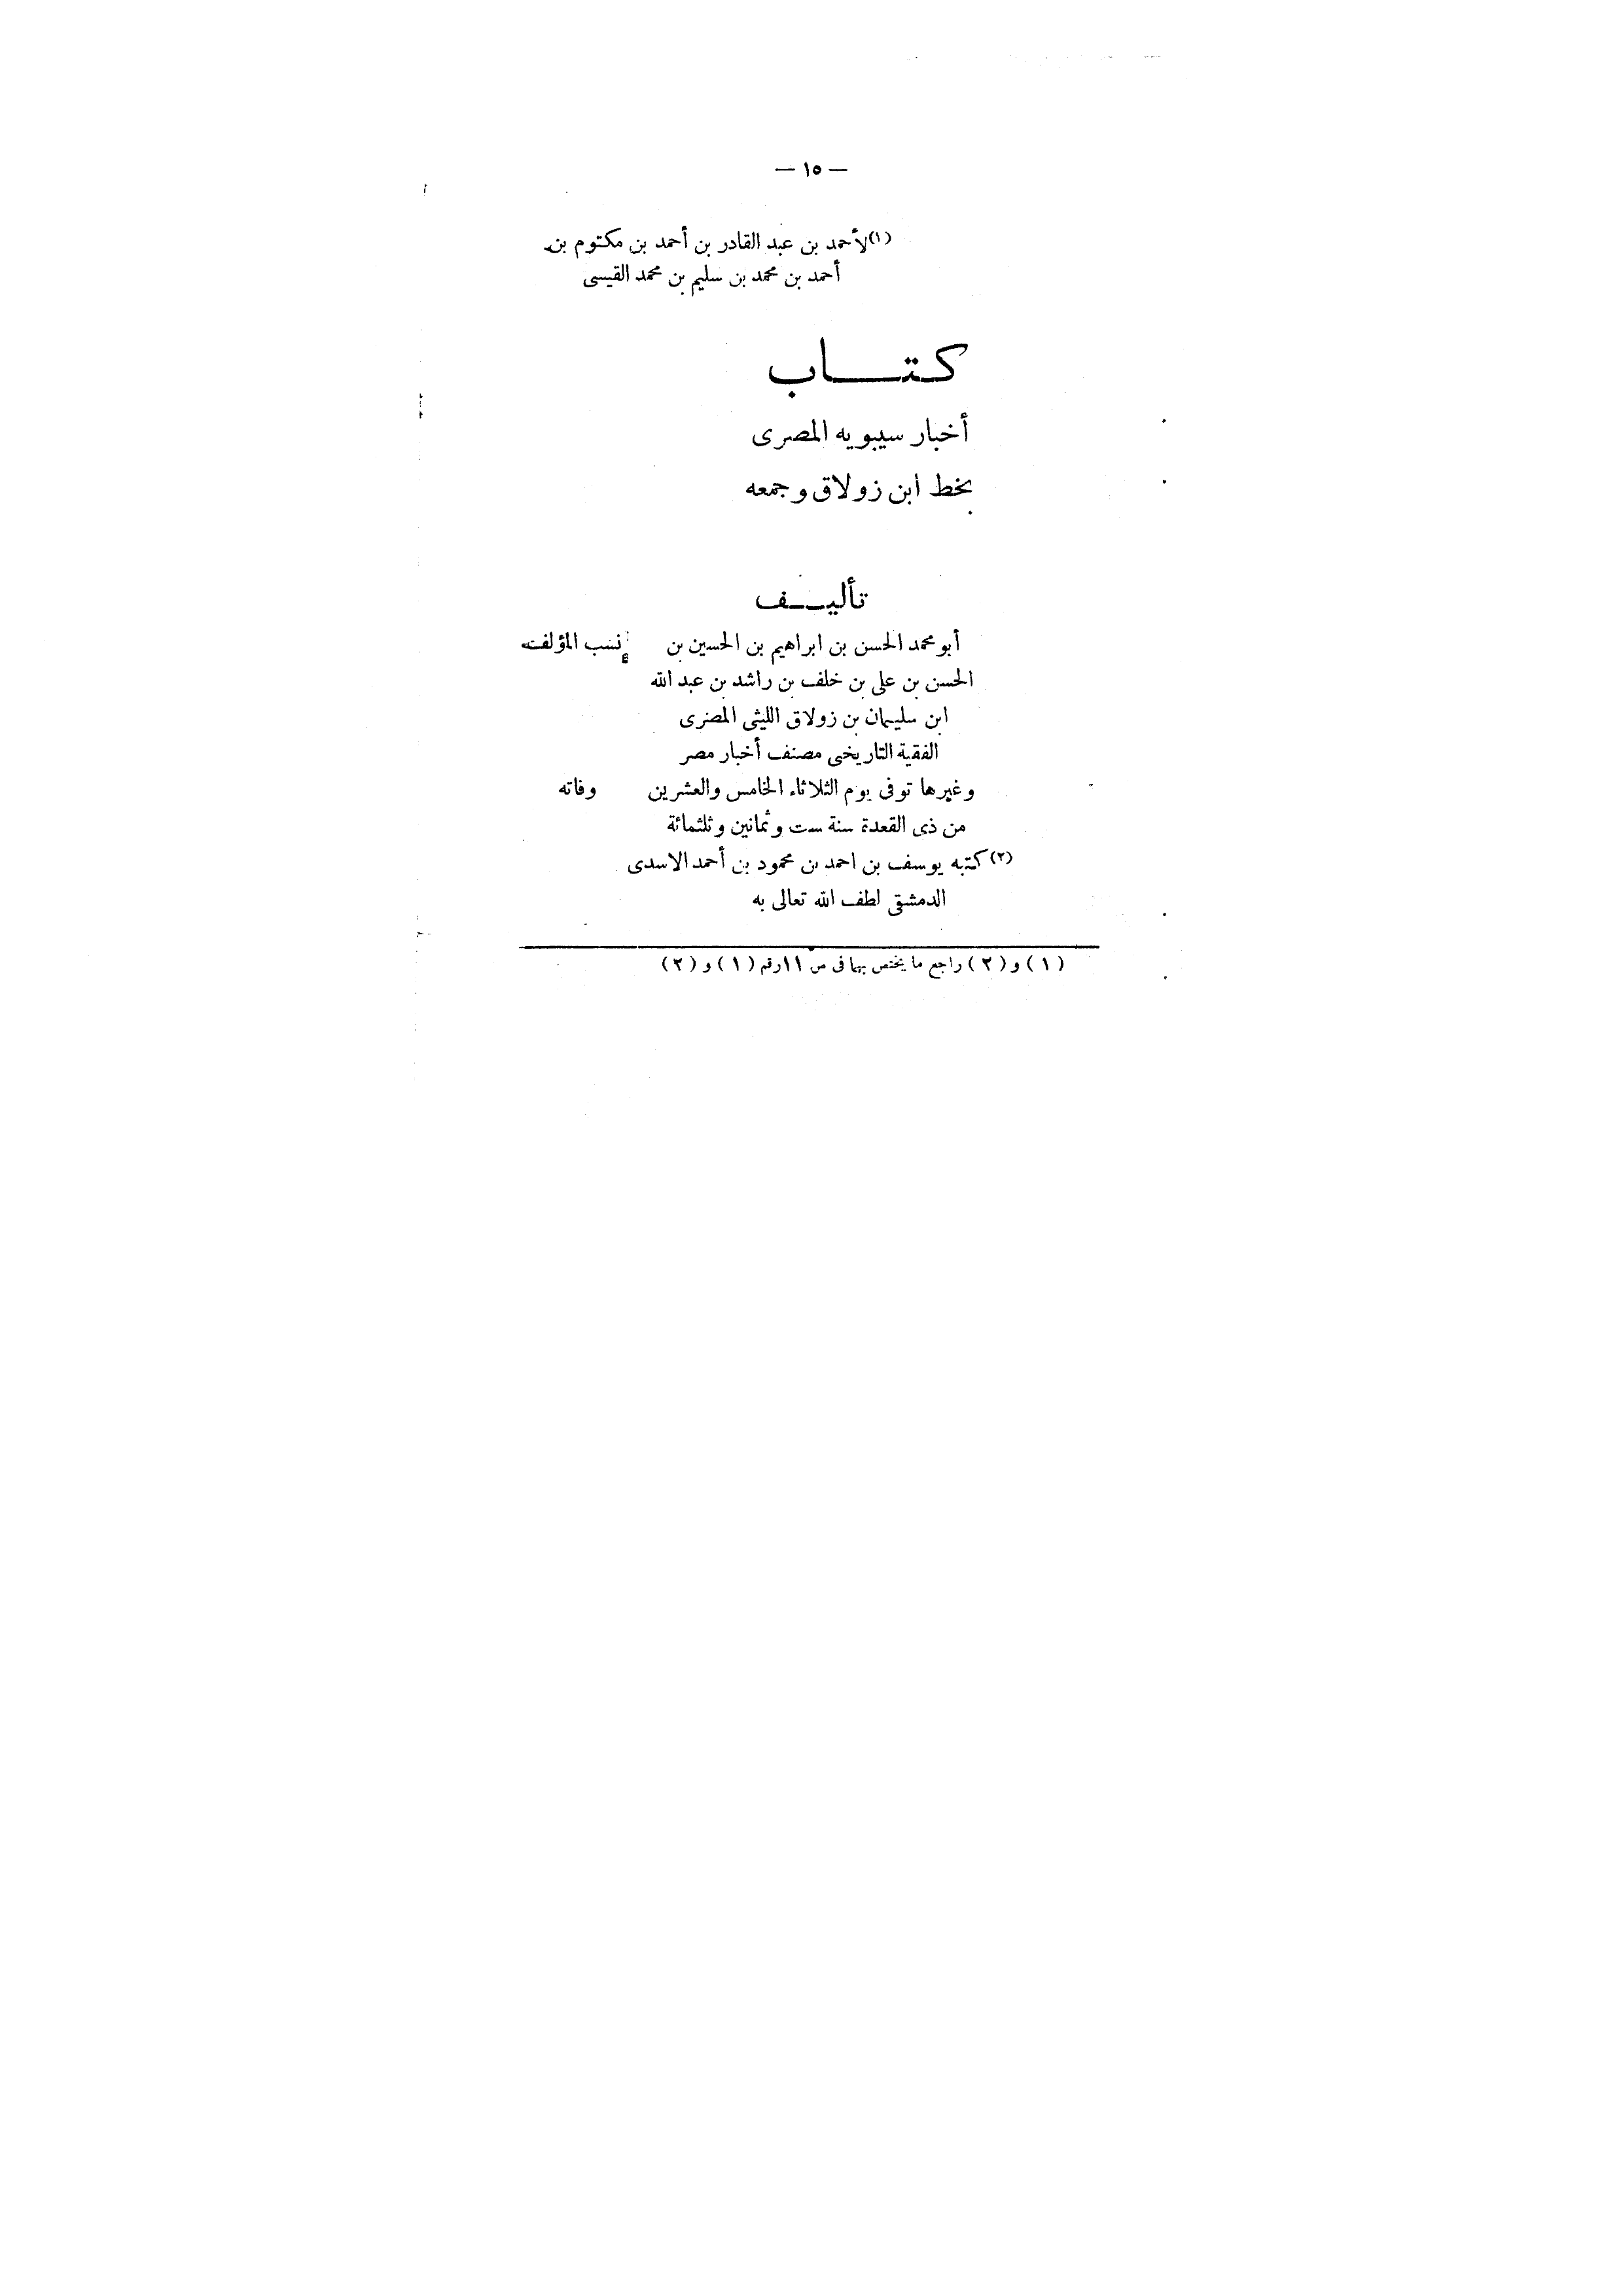 — ١٥ —
(١) لأحمد بن عبد القادر بن أحمد بن مكتوم بن
أحمد بن محمد بن سليم بن محمد القيسى
كتـــــاب
أخبار سيبويه المصرى
بخط ابن زولاق وجمعه
تأليـــف
أبو محمد الحسن بن ابراهيم بن الحسين بن نسب المؤلف
الحسن بن على بن خلف بن راشد بن عبد الله
ابن سليمان بن زولاق الليثى المصرى
الفقية التاريخى مصنف أخبار مصر
وغيرها توفى يوم الثلاثاء الخامس والعشرين وفاته
من ذى القعدة سنة ست وثمانين وثلثمائة
(٢) كتبه يوسف بن احمد بن محمود بن أحمد الاسدى
الدمشقى لطف الله تعالى به
(١) و (٢) راجع ما يختص بهما فى ص ١١ رقم (١) و (٢)